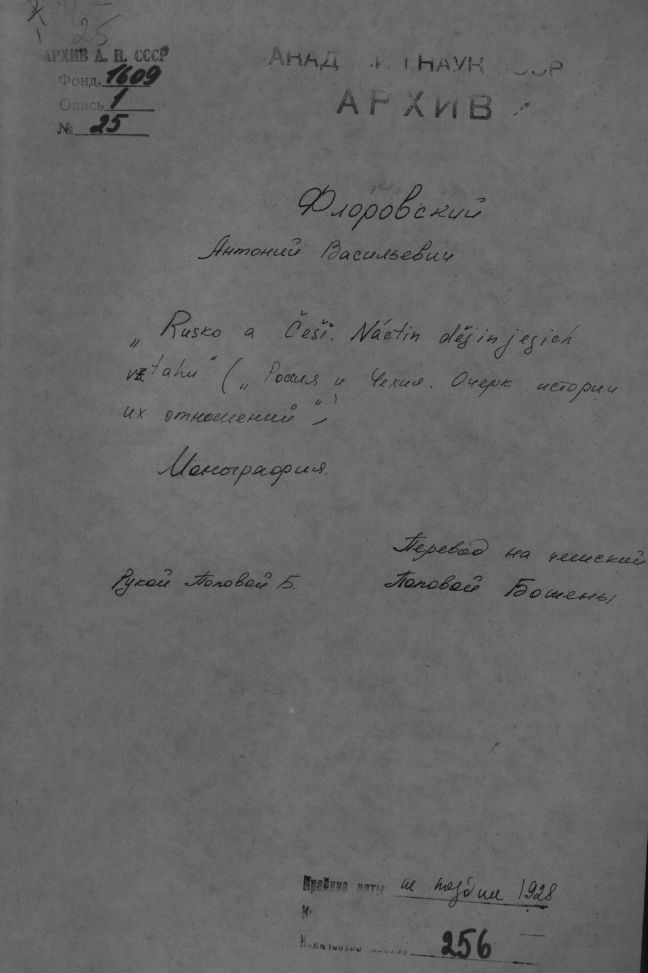 25
АРХИВ А. Н. СССР
Фонд. 1609
Опись 1
№ 25
АКАДЕМИЯ НАУК СССР
АРХИВ
Флоровский
Антоний Васильевич
„Rusko a Češi. Náčtin dějin jegich
vztahu" („Россия и Чехия. Очерк истории
их отношений")
Монография.
Перевод на чешский
Рукой Поповой Б.
Поповой Божены
Крайние даты не позднее 1928
Количество листов 256